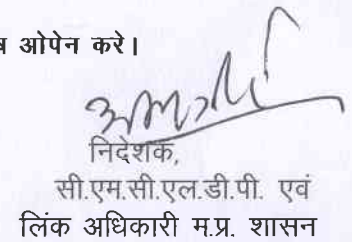 ओपेन करे।
निदेशक,
सी.एम.सी.एल.डी.पी. एवं
लिंक अधिकारी म.प्र. शासन